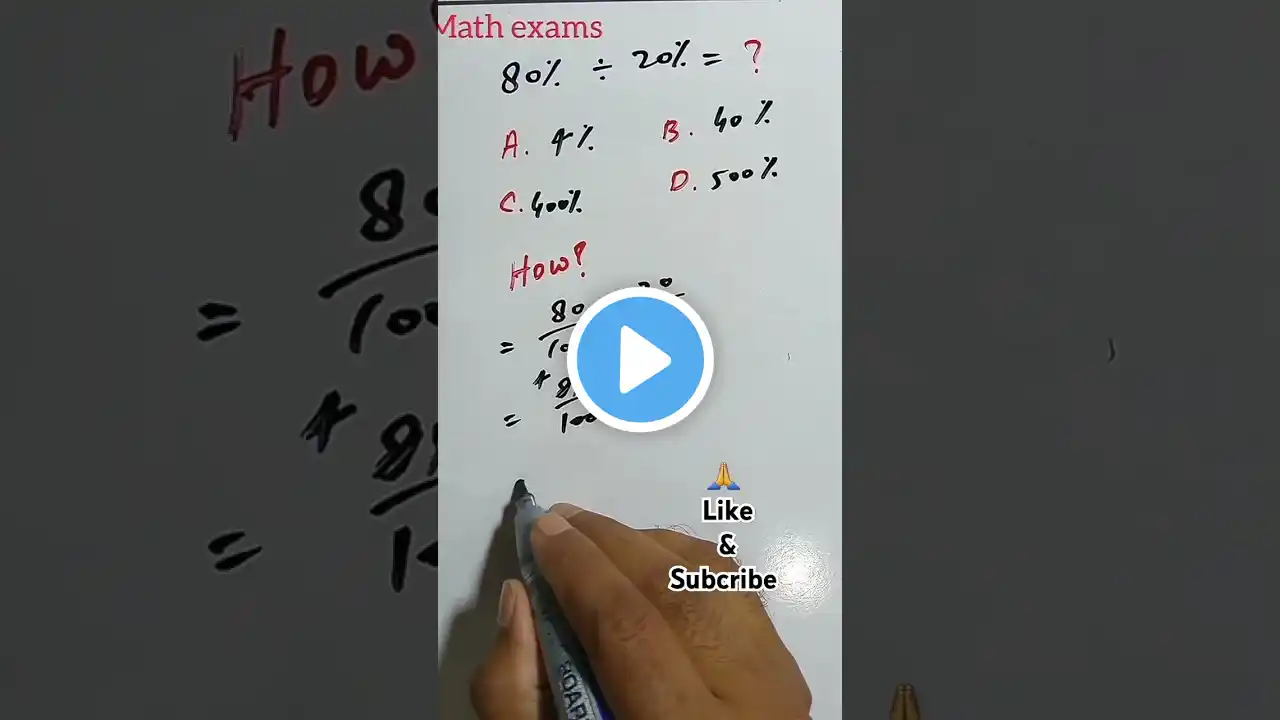 Math exams
80% ÷ 20% = ?
A. 4%
B. 40%
C. 400%
D. 500%
How?
= 80
= 100
🙏
Like
&
Subcribe